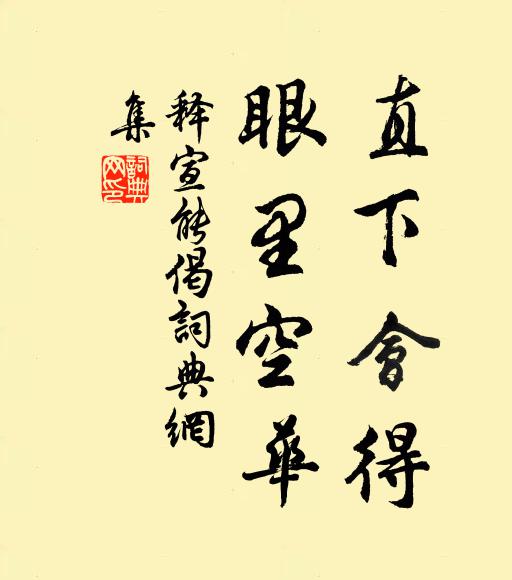 直下會得
眼里空華
释宣能偈詞典網
集
詞典
网印